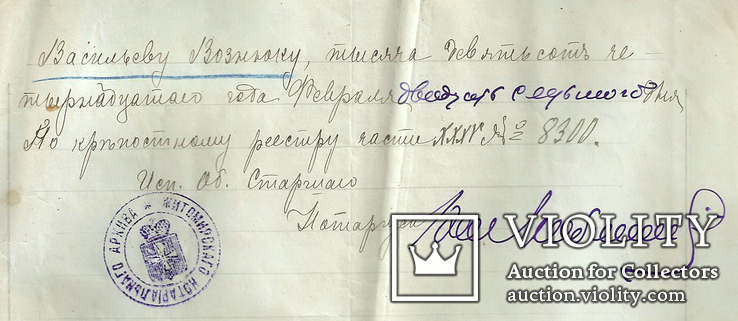 Васильеву Вознюку, тысяча девятьсотъ че-
тырнадцатаго года Февраля двадцать седьмого дня
По крѣпостному реестру части XXXIV № 8300.
Исп. Об. Старшаго
Нотаріуса
ЖИТОМИРСКАГО НОТАРІАЛЬНАГО АРХИВА
VIOLITY
Auction for Collectors
auction.violity.com